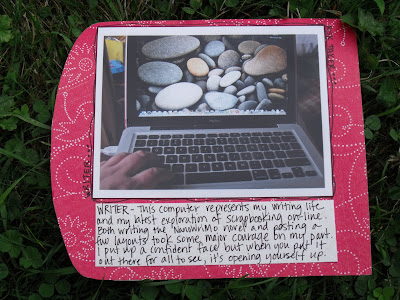 WRITER - This computer represents my writing life
and my latest exploration of scrapbooking on-line.
Both writing the "NanoWriMo novel" and posting a
few layouts took some major courage on my part.
I put up a confident face but when you put it
out there for all to see, it's opening yourself up.